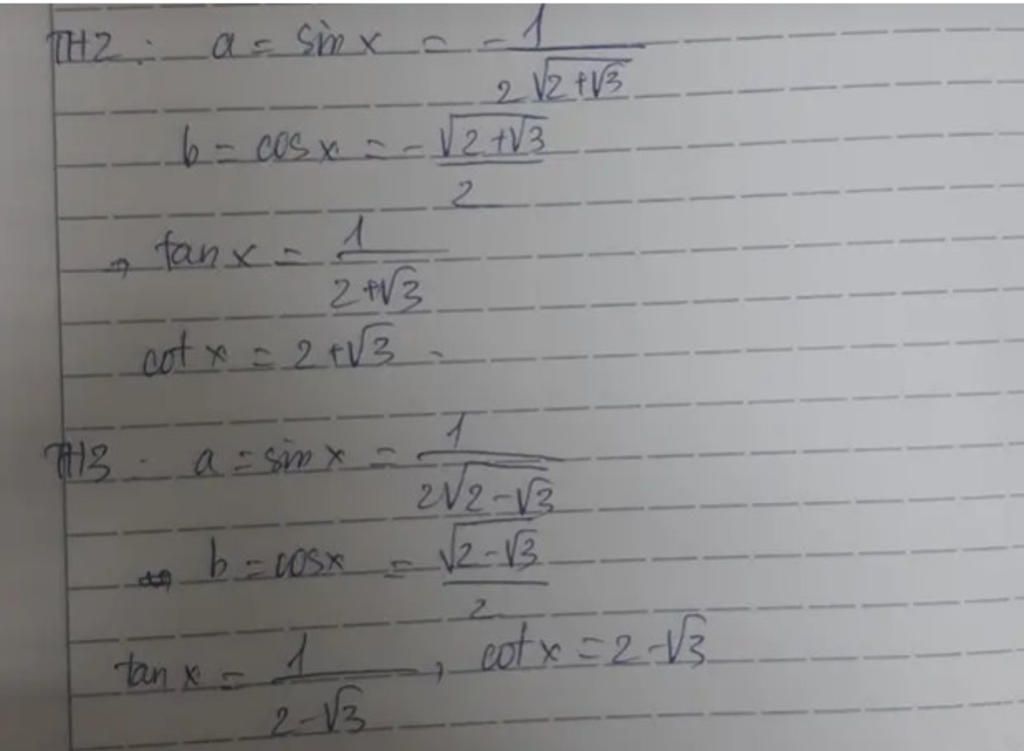 TH2: a = sin x = - 1/(2√(2+√3))
b = cos x = - √(2+√3)/2
→ tan x = 1/(2+√3)
cot x = 2+√3.
TH3. a = sin x = 1/(2√(2-√3))
b = cos x = √(2-√3)/2
tan x = 1/(2-√3), cot x = 2-√3